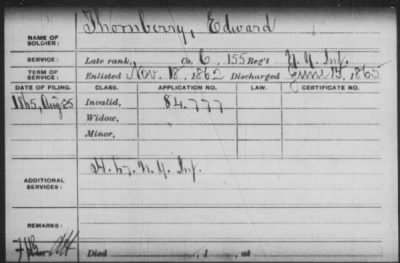 NAME OF SOLDIER: Thornberry, Edward
SERVICE: Late rank, Co. C, 155 Reg't N.Y. Inf.
TERM OF SERVICE: Enlisted Nov. 18, 1862 Discharged June 1865
DATE OF FILING. CLASS. APPLICATION NO. LAW. CERTIFICATE NO.
1865, Aug 25 Invalid, 84.777
Widow,
Minor,
ADDITIONAL SERVICES: N.Y. Inf.
REMARKS:
Died , 1 , at